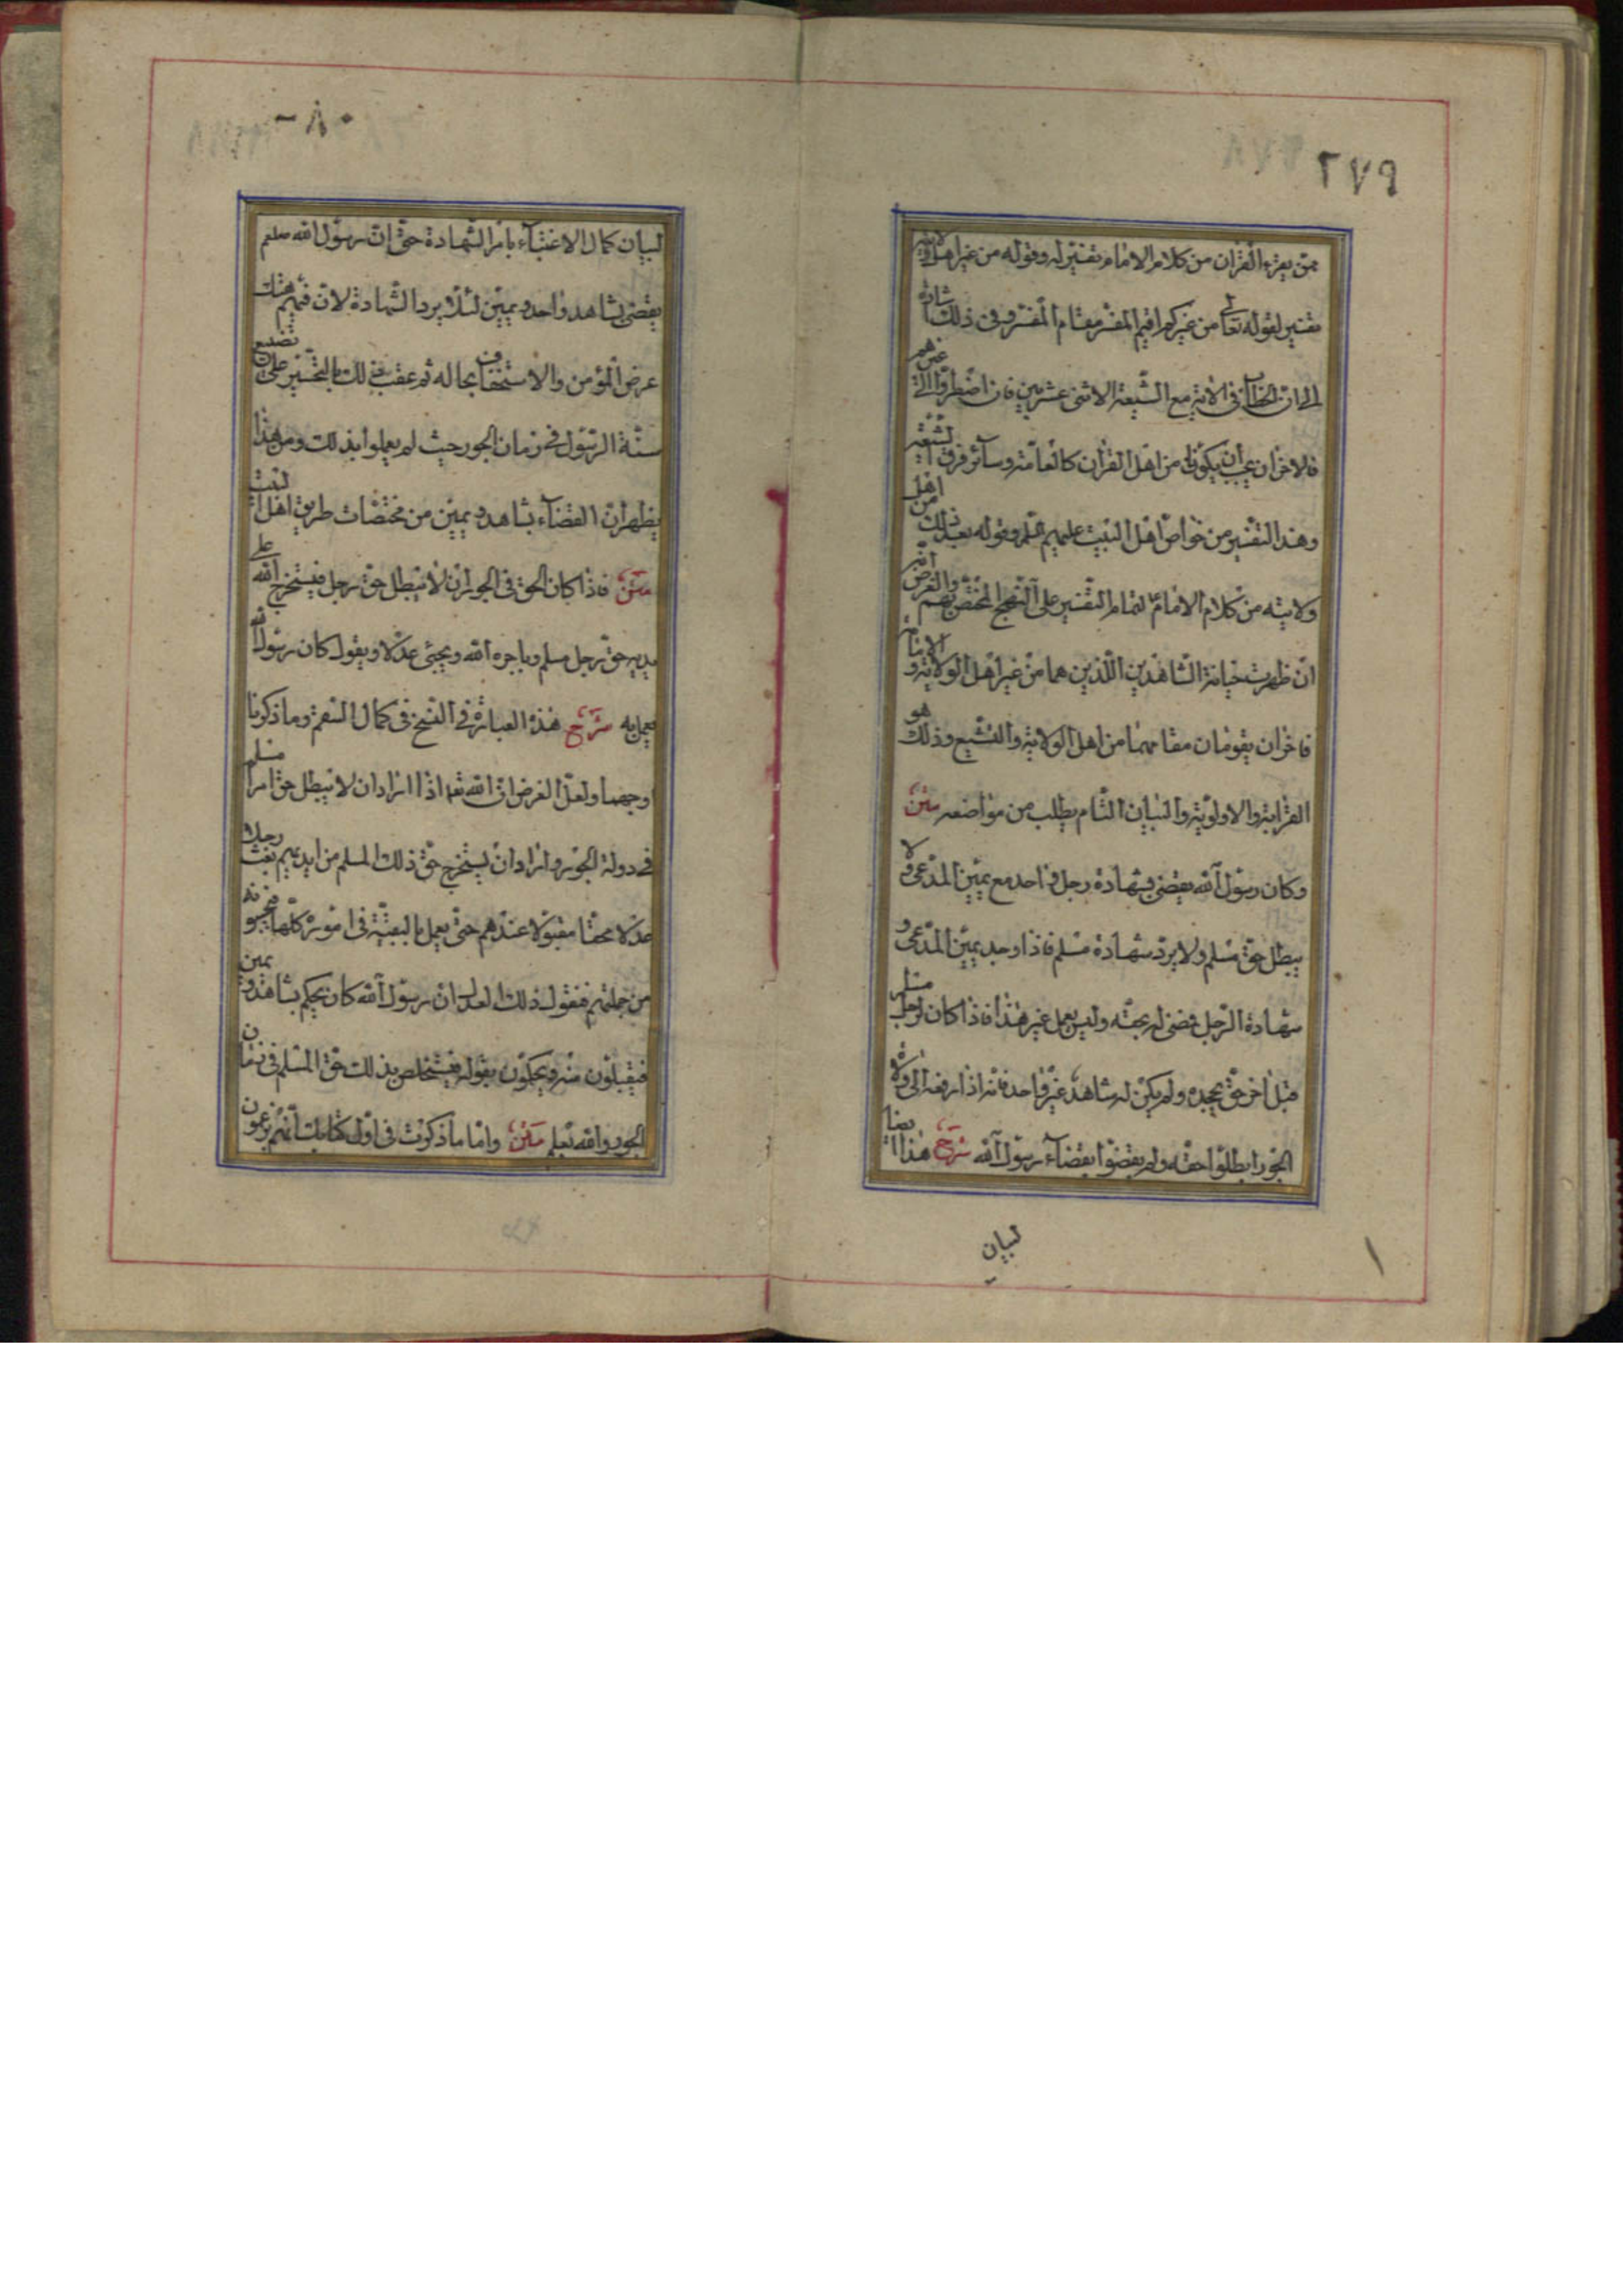 ٢٧٩
ممّن يقرء القرآن من كلام الامام تفسير له وقوله من غير اهل ولايته
تفسير لقوله تعالى من غيركم اقيم المفسر مقام المفسر وفى ذلك اشارة
الى ان الخطاب فى الآية مع الشيعة الاثنى عشريين فان اضطروا الى غيرهم
فالاخران يجب ان يكونا من اهل القرآن كالعامة وسائر فرق الشيعة
وهذا التفسير من خواص اهل البيت عليهم السلم وقوله بعد ذلك من اهل
ولايته من كلام الامام لتمام التفسير على النهج المختص بهم والغرض انه
ان ظهرت خيانة الشاهدين اللذين هما من غير اهل الولاية و
فاخران يقومان مقامهما من اهل الولاية والتشيع وذلك هو
القرابة والاولوية والبيان التام يطلب من مواضعه متن
وكان رسول الله يقضى بشهادة رجل واحد مع يمين المدعى ولا
يبطل حق مسلم ولا يرد شهادة مسلم فاذا وجد يمين المدعى و
شهادة الرجل قضى له بحقه وليس يعمل غير هذا فاذا كان لرجل مسلم
قبل اخر حق يجحده ولم يكن له شاهد غير واحد فانه اذا رفعه الى ولاة
الجور ابطلوا حقه ولم يقضوا بقضاء رسول الله شرح هذا ايضا
لبيان
١
٨٠
لبيان كمال الاعتناء بامر الشهادة حتى ان رسول الله صلعم
يقضى بشاهد واحد ويمين لئلا يرد الشهادة لان فيهم هتك
عرض المؤمن والاستخفاف بحاله ثم عقب ذلك بالتحسير على تضييع
سنة الرسول فى زمان الجور حيث لم يعملوا بذلك ومن هذا
يظهر ان القضاء بشاهد ويمين من مختصات طريق اهل البيت
متن فاذا كان الحق فى الجور ان لا يبطل حق رجل فيستخرج الله على
يديه حق رجل مسلم وياجره الله ويجئ عدلا ويقول كان رسول الله
يعمل به شرح هذه العبارة فى النسخ فى كمال السقم وما ذكرنا
اوجهها ولعل الغرض ان الله تعه اذا اراد ان لا يبطل حق امرأ مسلم
فى دولة الجور واراد ان يستخرج حق ذلك المسلم من ايديهم بعث رجلا
عدلا محقا مقبولا عندهم حتى يعمل بالتقية فى اموره كلها
من جملتهم فيقول ذلك العدل ان رسول الله كان يحكم بشاهد ويمين
فيقبلون منه ويحكمون بقوله فيستخلص بذلك حق المسلم فى زمان
الجور والله يعلم متن واما ما ذكرت فى اول كتابك انهم يزعمون